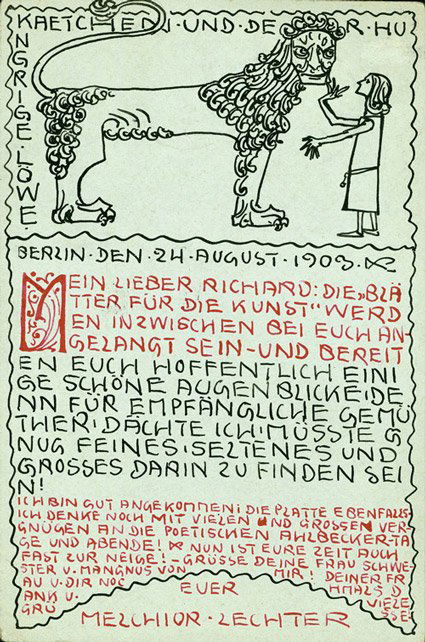 KAETCHEN·UND·DER·HU
NGRIGE·LÖWE·
BERLIN·DEN·24·AUGUST·1903·
MEIN LIEBER RICHARD: DIE „BLÄ
TTER FÜR DIE KUNST“ WERD
EN INZWISCHEN BEI EUCH AN-
GELANGT SEIN – UND BEREIT
EN EUCH HOFFENTLICH EINI
GE SCHÖNE AUGENBLICKE: DE
NN FÜR EMPFÄNGLICHE GEMÜ
THER·DÄCHTE ICH·MÜSSTE G
NUG FEINES·SELTENES UND
GROSSES DARIN ZU FINDEN SEI
N!
ICH BIN GUT ANGEKOMMEN: DIE PLATTE EBENFALLS.
ICH DENKE NOCH MIT VIELEN UND GROSSEN VER-
GNÜGEN AN DIE POETISCHEN AHLBECKER-TA
GE UND ABENDE! NUN IST EURE ZEIT AUCH
FAST ZUR NEIGE! – GRÜSSE DEINE FRAU SCHWE-
STER U. MANGNUS VON MIR! DEINER FR
AU U·DIR NOC HMALS D
ANK U· VIELE
GRÜ SSE!
EUER
MELCHIOR·LECHTER